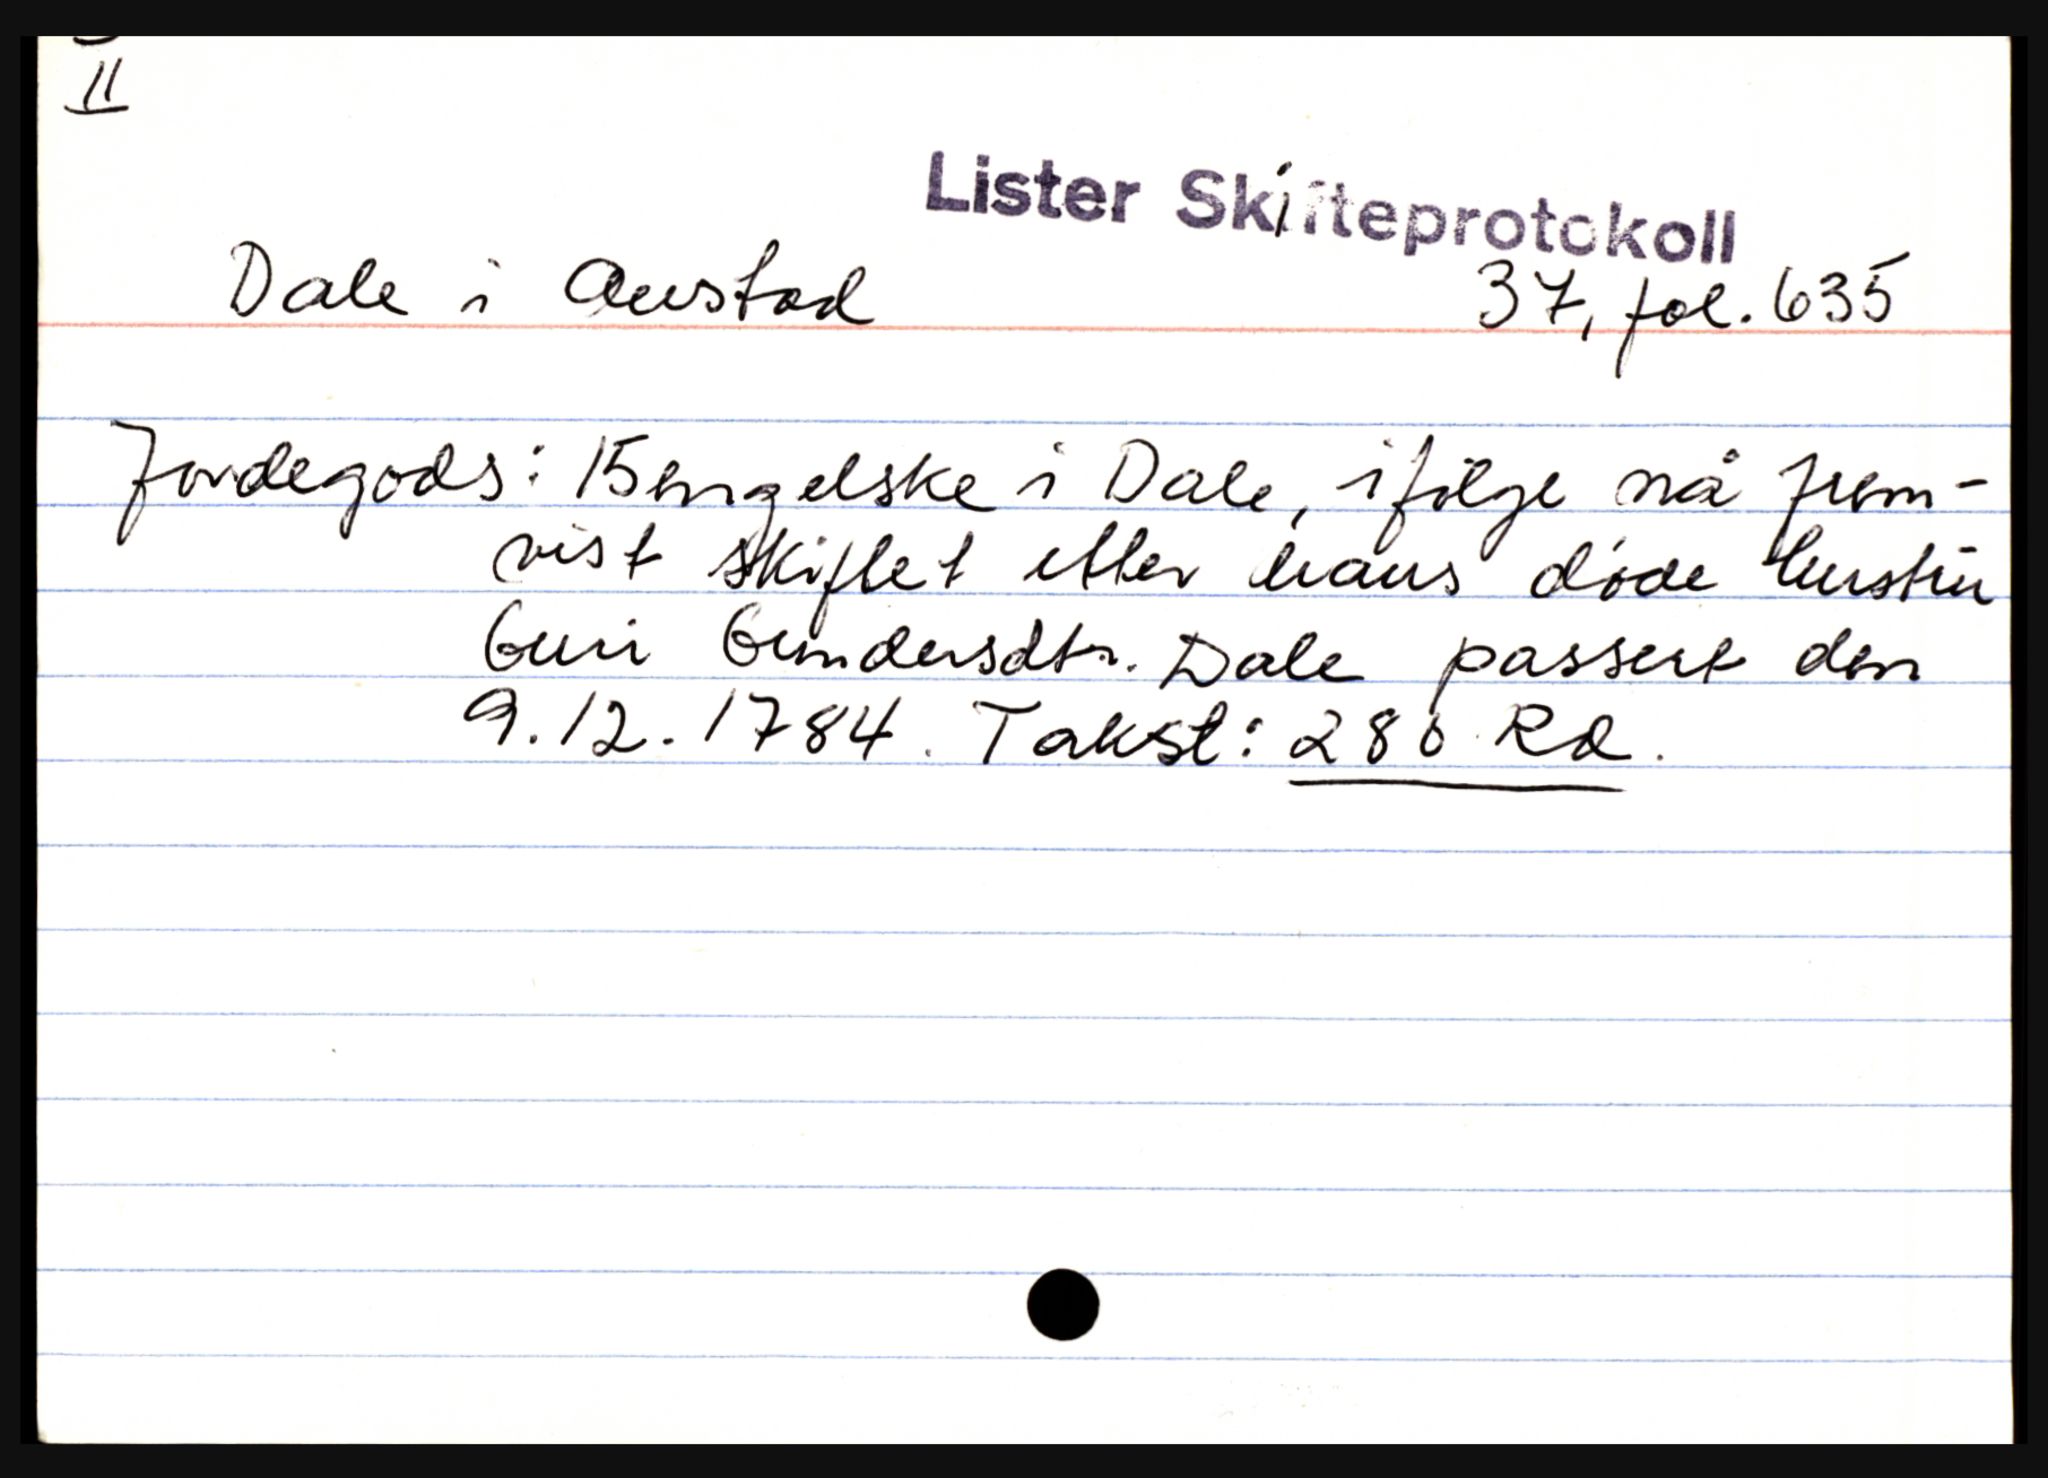 II
Lister Skifteprotokoll
Dale i Austad 37, fol. 635
Jordegods: 15 engelske i Dale, ifølge nå frem-
vist skiftet etter hans døde hustru
Guri Gundersdtr. Dale passert den
9.12.1784. Takst: 280 Rd.